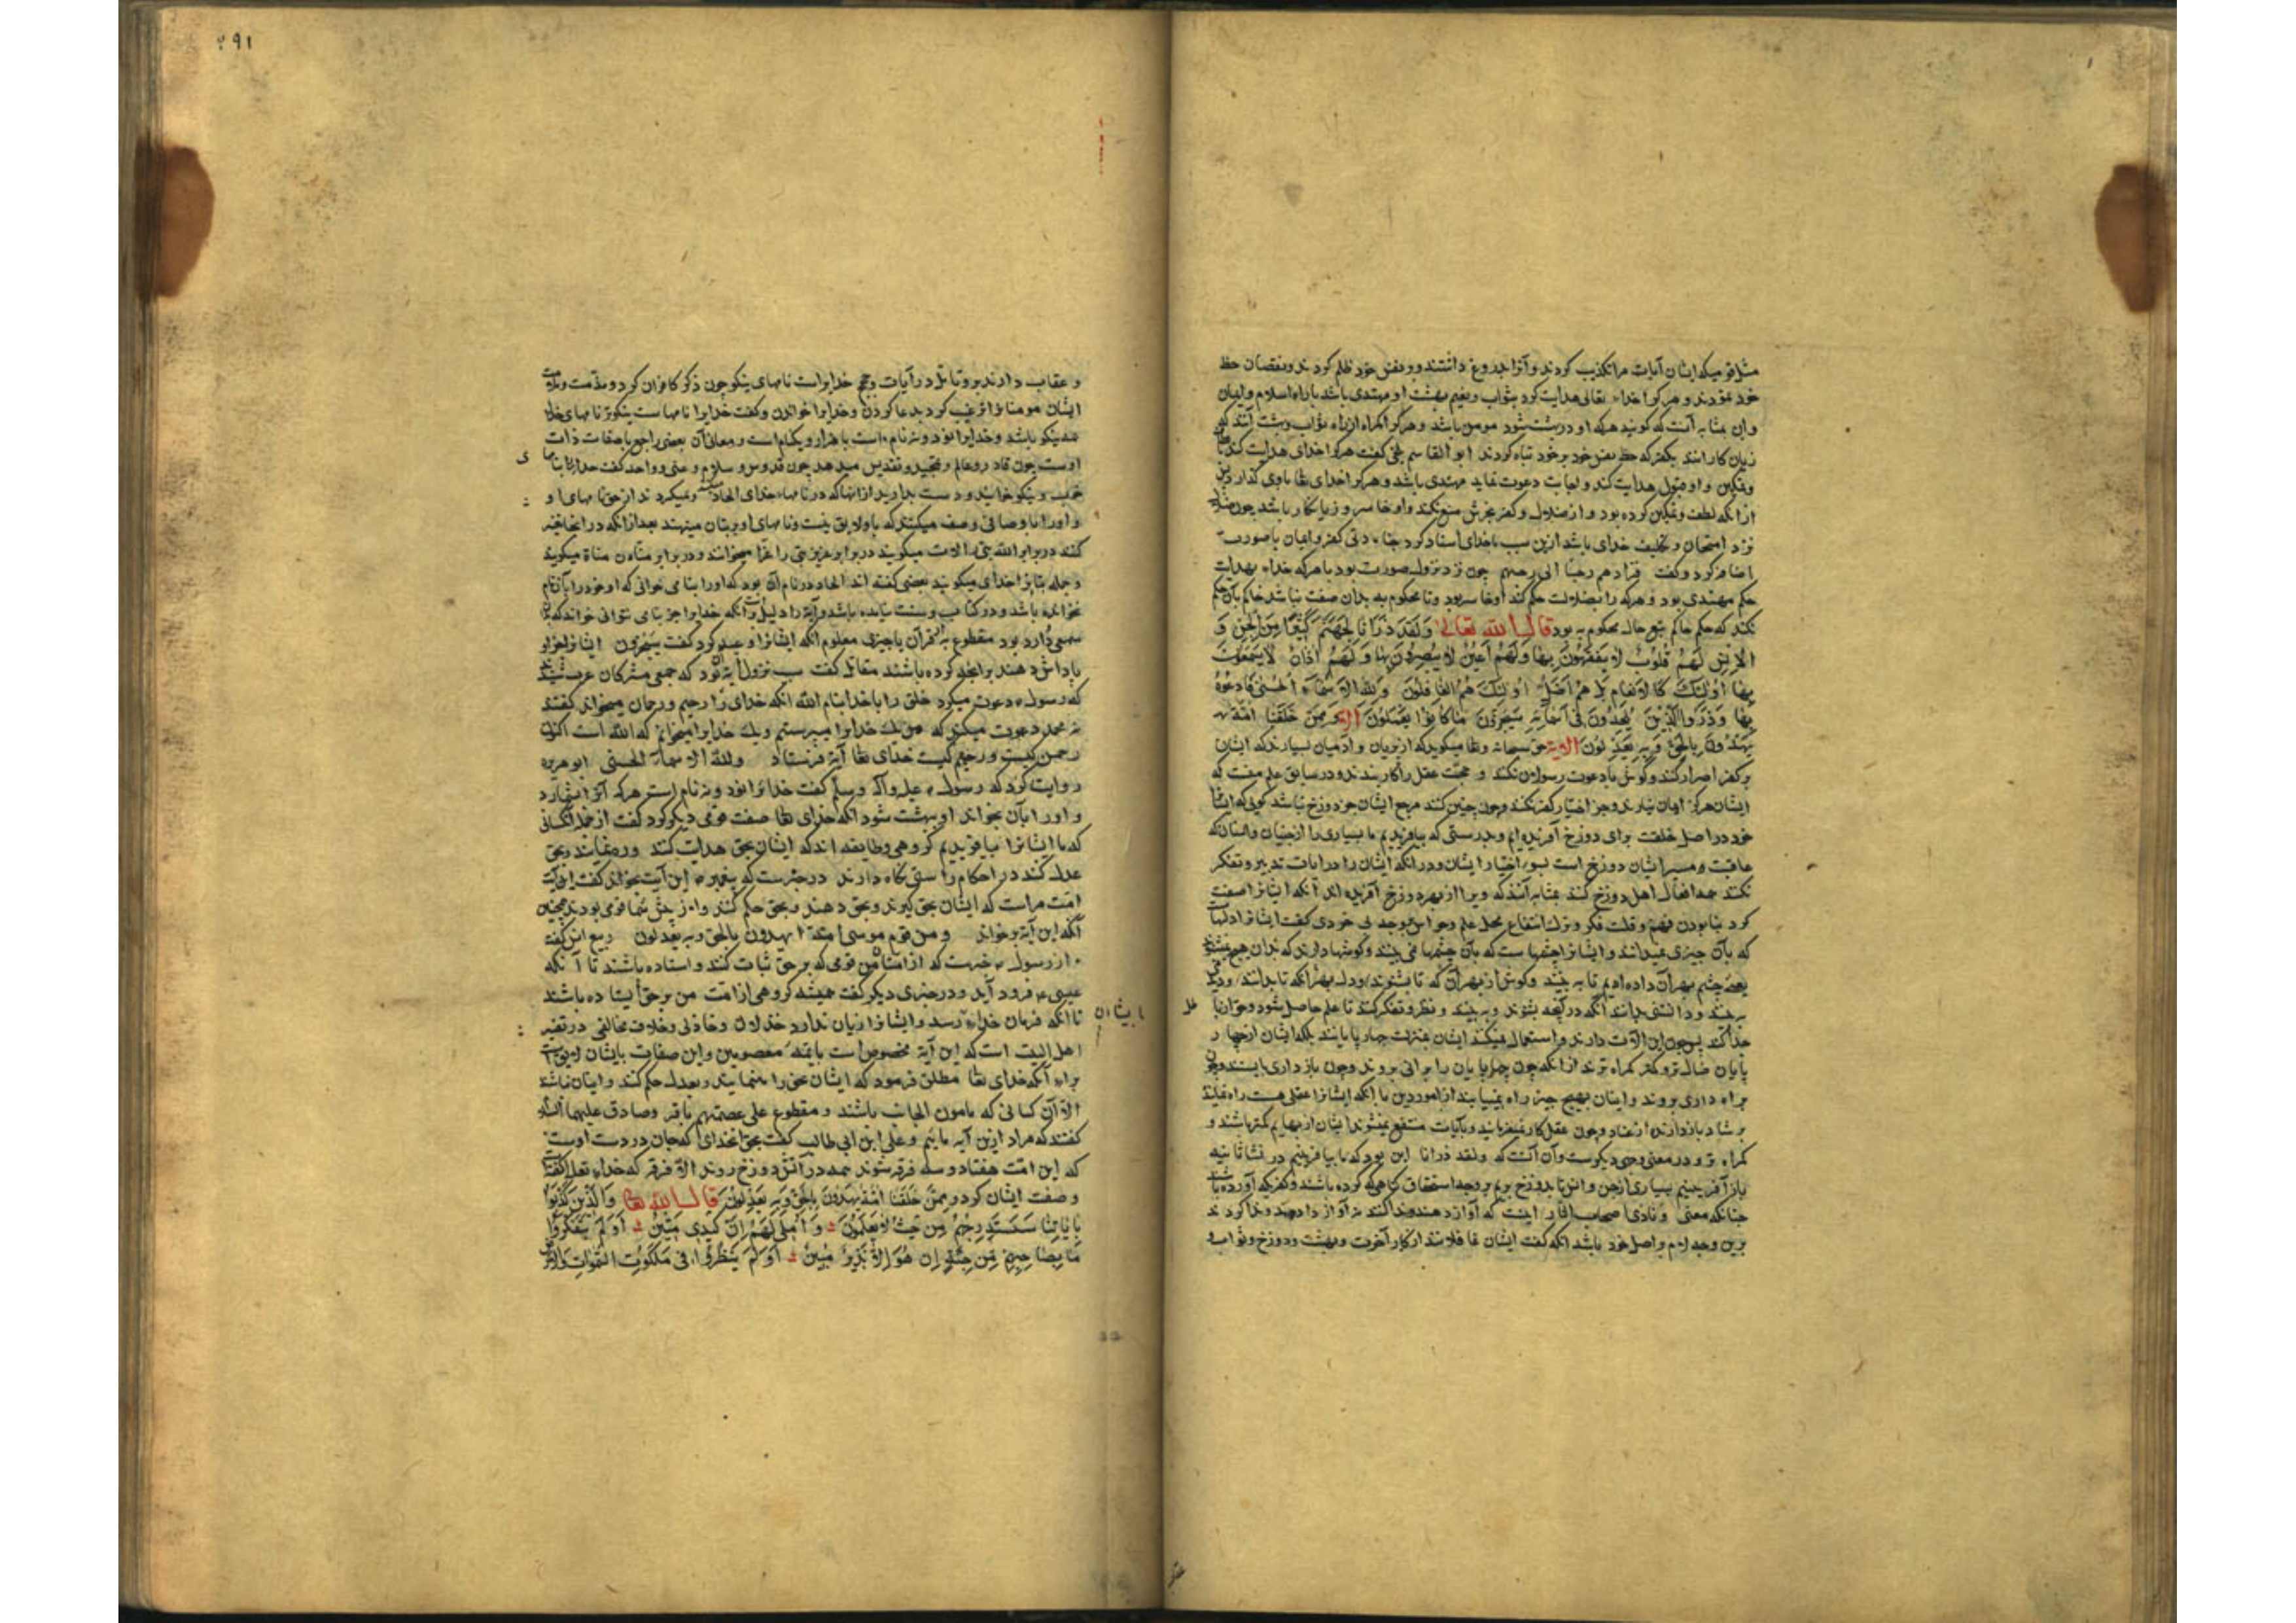 مثل قومیکه ایشان آیات مرا تکذیب کردند و آنرا بدروغ داشتند و بر نفس خود ظلم کردند و نقصان حظ
خود نمودند و هر کرا خداء تعالی هدایت کرد بثواب و نعیم بهشت او مهتدی باشد براه اسلام و ایمان
و این بمثابه آنست که گویند هر که او در بهشت شود مومن باشد و هر کرا گمراه از راه ثواب و بهشت آنند که
زیان کارانند بکفر که حظ نفس خود بر خود تباه کردند ابو القاسم بلخی گفت هر کرا خدای هدایت کند
و تمکین و او قبول هدایت کند و اجابت دعوت نماید مهتدی باشد و هر کرا خدای تعا باوی گذارد پس
از آنکه لطف و تمکین کرده بود و از ضلال و کفر بجبرش منع نکند و او خاسر و زیانکار باشد چون
نزد امتحان و تکلیف خدای باشد ازین سبب باخدای اسناد کرد چنانکه کفر و ایمان با صورت
اضافه کرد و گفت فزادهم رجسا الی رجسهم چون نزد نزول صورت بود با هر که خداء بهدایت
حکم مهتدی بود و هر که را بضلالت حکم کند او خاسر بود و تا محکوم به بدان صفت نباشد حاکم بآن حکم
نکند که حکم حاکم تبع حال محکوم به بود قال الله تعالی وَلَقَدْ ذَرَأْنَا لِجَهَنَّمَ كَثِيرًا مِنَ الْجِنِّ وَ
الْاِنْسِ لَهُمْ قُلُوبٌ لَا يَفْقَهُونَ بِهَا وَلَهُمْ اَعْيُنٌ لَا يُبْصِرُونَ بِهَا وَلَهُمْ اٰذَانٌ لَا يَسْمَعُونَ
بِهَا اُولٰئِكَ كَالْاَنْعَامِ بَلْ هُمْ اَضَلُّ اُولٰئِكَ هُمُ الْغَافِلُونَ وَلِلّٰهِ الْاَسْمَاءُ الْحُسْنٰى فَادْعُوهُ
بِهَا وَذَرُوا الَّذِينَ يُلْحِدُونَ فِى اَسْمَائِهِ سَيُجْزَوْنَ مَا كَانُوا يَعْمَلُونَ وَمِمَّنْ خَلَقْنَا اُمَّةٌ
يَهْدُونَ بِالْحَقِّ وَبِهِ يَعْدِلُونَ الایة حق سبحانه و تعا میگوید که از پریان و آدمیان بسیارند که ایشان
بر کفر اصرار کنند و گوش با دعوت رسولان نکنند و حجت عقل را کار نبندند و در سابق علم منست که
ایشان هرگز ایمان نیارند و جز اختیار کفر نکنند و چون چنین کنند مرجع ایشان جز دوزخ نباشد گویی که ایشانرا
خود در اصل خلقت برای دوزخ آفریده‌ایم و بدرستی که بیافریدیم ما بسیاری را از جنیان و انسیان که
عاقبت و مسیر ایشان دوزخ است بسوء اختیار ایشان و در آنکه ایشان را در آیات تدبیر و تفکر
نکنند همه افعال اهل دوزخ کنند بمثابه آنند که ویرا از بهر دوزخ آفریده‌اند آنکه ایشانرا صفت
کرد بنابودن فهم و قلت فکر و ترک انتفاع بمحل علم و حواس بوجد بی خردی گفت ایشانرا دلهاست
که بآن چیزی نمیدانند و ایشانرا چشمها ست که بآن چشمها نمی بینند و گوشها دارند که بدان هیچ نشنوند
یعنی چشم بهر آن داده‌ایم تا به بینند و گوش از بهر آن که تا بشنوند و دل بهر آنکه تا بدانند
به بینند و دانستی بدانند آنکه در گفته بشنوند و به بینند و نظر و تفکر کنند تا علم حاصل شود
جدا کند پس چون این آلات دارند و استعمال نمیکنند ایشان بمنزلت چهار پایانند بلکه ایشان از چهار
پایان ضال تر و گمراه ترند از آنکه چون چهار پایان را برانی بروند و چون بازداری بایستند
براه داری بروند و ایشان بهیچ چیز راه نمییابند از امور دین با آنکه ایشانرا عقلی هست راه نمایند
بر شاد بازدارند از فساد و چون عقل کار نمیفرمایند و بآیات منتفع نمیشوند ایشان از بهایم کمتر باشند و
گمراه تر و در معنی وجهی دیگرست و آن آنست که ولقد ذرانا این بود که ما بیافرینیم در نشأ ثانیه
باز آفرینیم بسیاری از جن و انس تا بدوزخ بریم بر وجه استحقاق گناهی که کرده باشند و کفری که آورده باشند
چنانکه معنی و نادی اصحاب النار اینست که آواز دهند و ندا کنند نه آواز دادند و ندا کردند
برین وجه لام بر اصل خود باشد آنکه گفت ایشان غافلانند از کار آخرت و بهشت و دوزخ و ثواب و
۲۹۱
و عقاب دارند بر و تامل در آیات و حجج خدایراست نامهای نیکو چون ذکر کافران کرد و مذمت و ملامت
ایشان مومنانرا ترغیب کرد بدعا کردن و خدایرا خواندن و گفت خدایرا نامهاست نیکوتر نامهای خدا
همه نیکو باشد و خدایرا نود و نه نام است با هزار و یکنام است و معانی آن بعضی راجع با صفات ذات
اوست چون قادر و عالم و تمجید و تقدیس میدهد چون قدوس و سلام و غنی و واحد گفت خدایرا بنامها
خوب و نیکو خوانید و دست بدارید از آنها که در نامهاء خدای الحاد و میگردند از حق نامهای او
و او را باوصافی وصف میکنند که باو لایق نیست و نامهای او بر بتان مینهند بعد از آنکه در آنجا تغییر
کنند در برابر الله بتی را لات میگویند در برابر عزیز بتی را عزا میخوانند و در برابر منان مناة میگویند
و جمله بتانرا خدای میگویند بعضی گفته اند الحاد در نام آن بود که او را بنامی خوانی که او خود را بآن نام
نخوانده باشد و در کتاب و سنت نیامده باشد و آیة را دلیلست آنکه خدایرا جز بنامی نتوانی خواند که
سمعی وارد بود مقطوع به قرآن یا چیزی معلوم آنکه ایشانرا وعید کرد گفت سَیُجْزَوْنَ ایشانرا جزا و
پاداش دهند برانچه کرده باشند مقاتل گفت سبب نزول آیه آن بود که جمعی مشرکان عرب شنیدند
که رسول دعوت میکرد خلق را باخدا بنام الله آنکه خدای را رحیم و رحمان میخواند گفتند
نه محمد دعوت میکند که من یک خدایرا میپرستم و یک خدایرا میخوانم که الله است اکنون
رحمن کیست و رحیم کیست خدای تعا آیة فرستاد ولله الاسماء الحسنی ابو هریره
روایت کرد که رسول علیه و آله وسلم گفت خدایرا نود و نه نام است هر که آنرا بشمارد
و او را بآن بخواند او بهشت شود آنکه خدای تعا صفت قومی دیگر کرد گفت از جمله آنکسانی
که ما ایشانرا بیافریدیم گروهی و طایفه اند که ایشان بحق هدایت کنند و رهنمایند و بحق
عدل کنند در احکام راستی نگاه دارند در خبرست که پیغمبر این آیت بخواند گفت این آیت
امّت مراست که ایشان بحق گیرند و بحق دهند و بحق حکم کنند و از پیش شما قومی بودند همچنین
آنکه این آیة بر خواند ومن قوم موسی امة یهدون بالحق وبه یعدلون ربیع انس گفت
از رسول خبرست که از امّت من قومی که بر حق ثبات کنند و استاده باشند تا آنکه
عیسی فرود آید و در خبری دیگر گفت همیشه گروهی از امّت من بر حق ایستاده باشند
تا آنکه فرمان خداء رسد و ایشانرا زیان ندارد خذلان و خاذلی و خلاف مخالفی در تفسیر
اهل البیت است که این آیة مخصوص است بائمّهء معصومین و این صفات بایشان لایق است
براء آنکه خدای تعا مطلق فرمود که ایشان بحق راه نمایند و بعدل حکم کنند و اینان نباشند
الّا آن کسانی که مامون الجانب باشند و مقطوع علی عصمتهم باقر و صادق علیهما السلام
گفتند که مراد ازین آیه مائیم و علی ابن ابی طالب گفت بحق آنخدای که جان در دست اوست
که این امّت هفتاد و سه فرقه شوند همه در آتش دوزخ روند الّا فرقه که خداء تعا گفت
وصفت ایشان کرد وَمِمَّنْ خَلَقْنَا اُمَّةٌ يَهْدُونَ بِالْحَقِّ وَبِهِ يَعْدِلُونَ قال الله تعا وَالَّذِينَ كَذَّبُوا
بِاٰيَاتِنَا سَنَسْتَدْرِجُهُمْ مِنْ حَيْثُ لَا يَعْلَمُونَ وَاُمْلِى لَهُمْ اِنَّ كَيْدِى مَتِينٌ اَوَلَمْ يَتَفَكَّرُوا
مَا بِصَاحِبِهِمْ مِنْ جِنَّةٍ اِنْ هُوَ اِلَّا نَذِيرٌ مُبِينٌ اَوَلَمْ يَنْظُرُوا فِى مَلَكُوتِ السَّمٰوَاتِ وَالْاَرْضِ